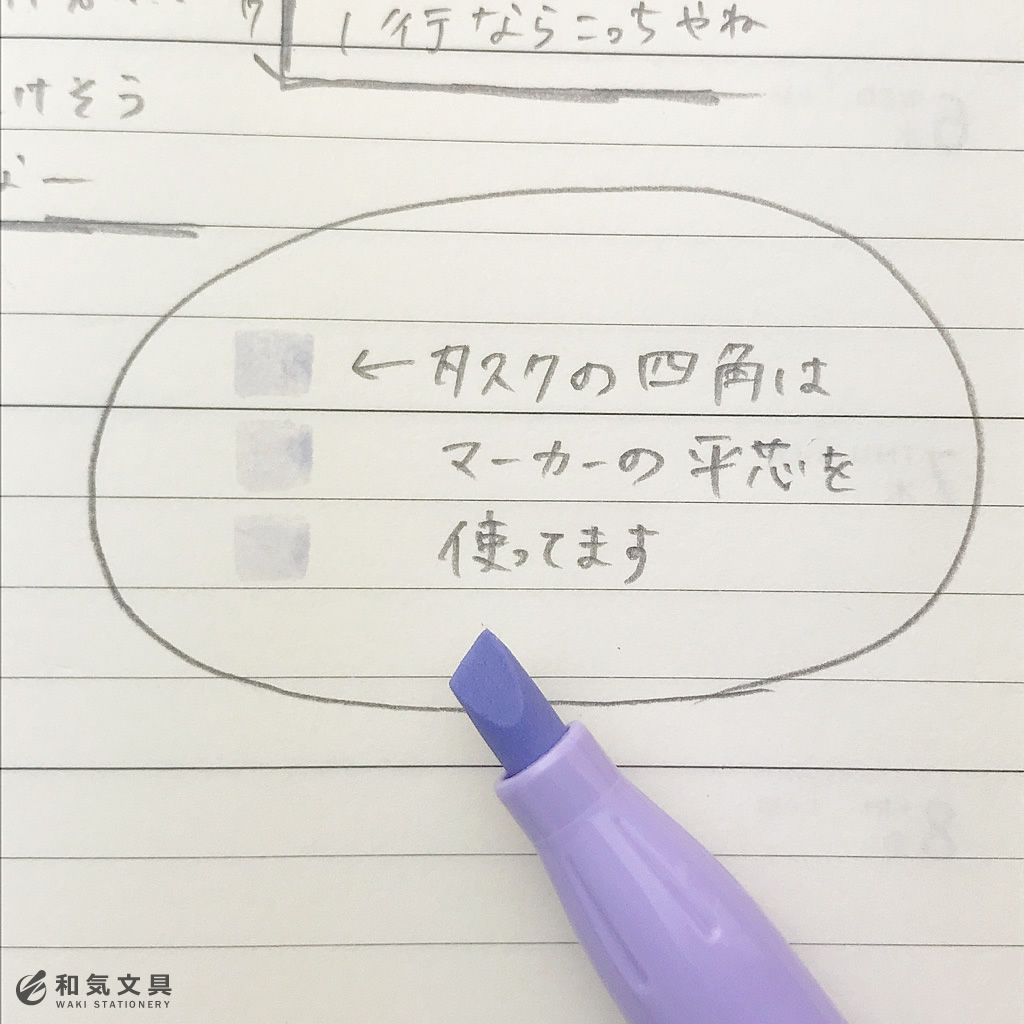 1行ならこっちやね
けそう
←タスクの四角は
マーカーの平芯を
使ってます
和気文具
WAKI STATIONERY